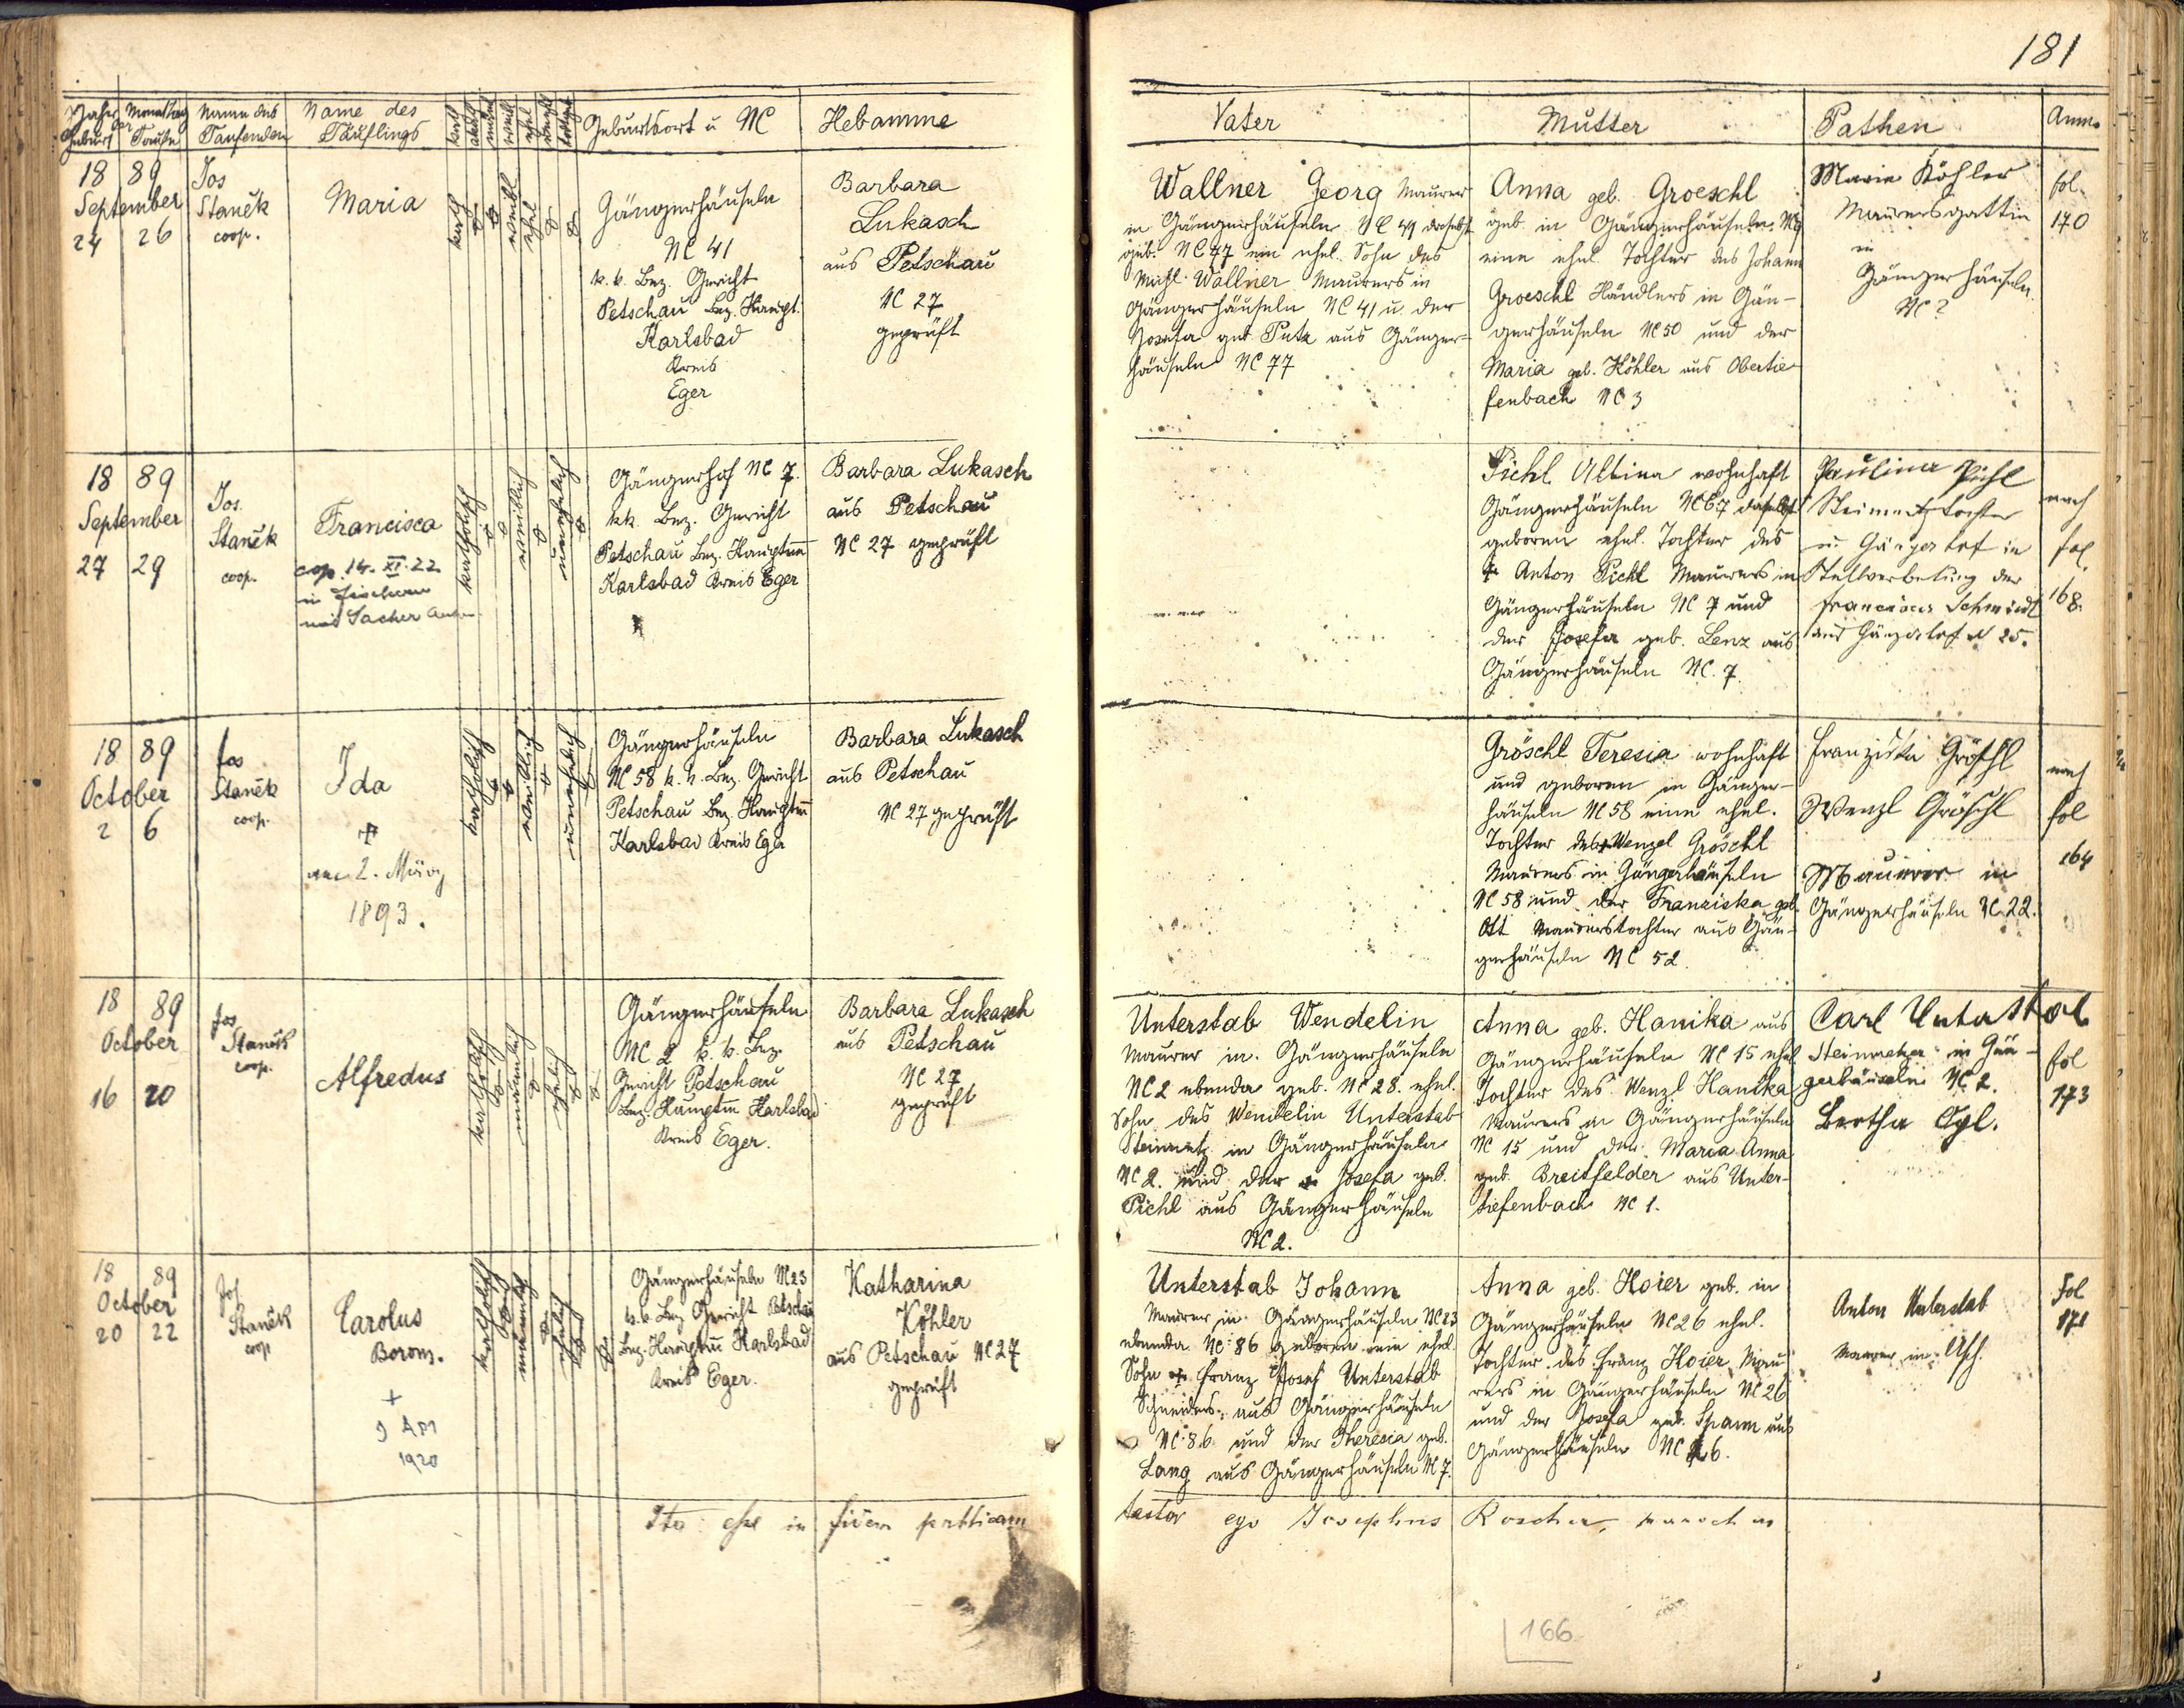 181
Jahr Monat Tag
der
Geburt Taufe
Name des
Taufenden
Name des
Täuflings
Geburtsort u NC
Hebamme
Vater
Mutter
Pathen
Anm.
18 89
September
24 26
Jos
Staněk
coop.
Maria
kath
weibl
ehel
Gängerhäuseln
NC 41
k. k. Bez. Gericht
Petschau Bez. Haupt.
Karlsbad
Kreis
Eger
Barbara
Lukasch
aus Petschau
NC 27
geprüft
Wallner Georg Maurer
in Gängerhäuseln NC 41 daselbst
geb. NC 77 ein ehel. Sohn des
Wallner Maurers in
Gängerhäuseln NC 41 u. der
Josefa geb. Puta aus Gänger-
häuseln NC 77
Anna geb. Groeschl
geb. in Gängerhäuseln
eine ehel. Tochter des Johann
Groeschl Händlers in Gän-
gerhäuseln NC 50 und der
Maria geb. Köhler aus Obertie-
fenbach NC 3
Maria Köhler
Maurersgattin
in
Gängerhäuseln
NC ?
fol.
170
18 89
September
27 29
Jos.
Staněk
coop.
Francisca
cop. 14. XI. 22
in Fischern
mit Sacher Anton
katholisch
weiblich
unehelich
Gängerhof NC 7.
kk. Bez. Gericht
Petschau Bez. Hauptm
Karlsbad Kreis Eger
Barbara Lukasch
aus Petschau
NC 27 geprüft
Pichl Albina wohnhaft
Gängerhäuseln NC 67 daselbst
geboren ehel. Tochter des
† Anton Pichl Maurers in
Gängerhäuseln NC 7 und
der Josefa geb. Lenz aus
Gängerhäuseln NC. 7.
Paulina Pichl
Steinmetztochter
in
Stellvertretung der
Francisca Schmidl
aus Gängerhof N 25.
nach
fol.
168.
18 89
October
2 6
Jos
Staněk
coop.
Ida
†
am 2. März
1893.
katholisch
weiblich
unehelich
Gängerhäuseln
NC 58 k. k. Bez. Gericht
Petschau Bez. Hauptm
Karlsbad Kreis Eger
Barbara Lukasch
aus Petschau
NC 27 geprüft
Gröschl Teresia wohnhaft
und geboren in Gänger-
häuseln NC 58 eine ehel.
Tochter des † Wenzel Gröschl
Maurers in Gängerhäuseln
NC 58 und der Franziska geb.
Ott Maurerstochter aus Gän-
gerhäuseln NC 52.
Franziska Gröschl
Wenzl Gröschl
Maurer in
Gängerhäuseln NC. 22.
nach
fol
164
18 89
October
16 20
Jos
Staněk
coop.
Alfredus
katholisch
männlich
ehelich
Gängerhäuseln
NC 2 k. k. Bez.
Gericht Petschau
Bez. Hauptm Karlsbad
Kreis Eger.
Barbara Lukasch
aus Petschau
NC 27
geprüft
Unterstab Wendelin
Maurer in Gängerhäuseln
NC 2 ebenda geb. NC 28. ehel.
Sohn des Wendelin Unterstab
Steinmetz in Gängerhäuseln
NC 2. und der Josefa geb.
Pichl aus Gängerhäuseln
NC 2.
Anna geb. Hanika aus
Gängerhäuseln NC 15 ehel
Tochter des Wenzl Hanika
Maurers in Gängerhäuseln
NC 15 und der Maria Anna
geb. Breitfelder aus Unter-
tiefenbach NC 1.
Carl Untastab
Steinmetzer in Gän-
gerhäuseln NC 2.
Bertha Egl.
fol
173
18 89
October
20 22
Jos
Staněk
coop
Carolus
Borom.
+
9 Apr
1920
katholisch
männlich
ehelich
Gängerhäuseln NC 23
k. k. Bez Gericht Petschau
Bez. Hauptm Karlsbad
Kreis Eger.
Katharina
Köhler
aus Petschau NC 27
geprüft
Unterstab Johann
Maurer in Gängerhäuseln NC 23
ebenda NC: 86 geboren ein ehel.
Sohn Franz Josef Unterstab
Schneiders aus Gängerhäuseln
NC: 86 und der Theresia geb.
Lang aus Gängerhäuseln NC 7.
Anna geb. Hoier geb. in
Gängerhäuseln NC 26 ehel.
Tochter des Franz Hoier Mau
rers in Gängerhäuseln NC 26
und der Josefa geb. Spann aus
Gängerhäuseln NC 26.
Anton Unterstab
Maurer in Asch.
Fol
171
Ita esse in fidem publicam
testor ego Josephus Roscher, parochus
166